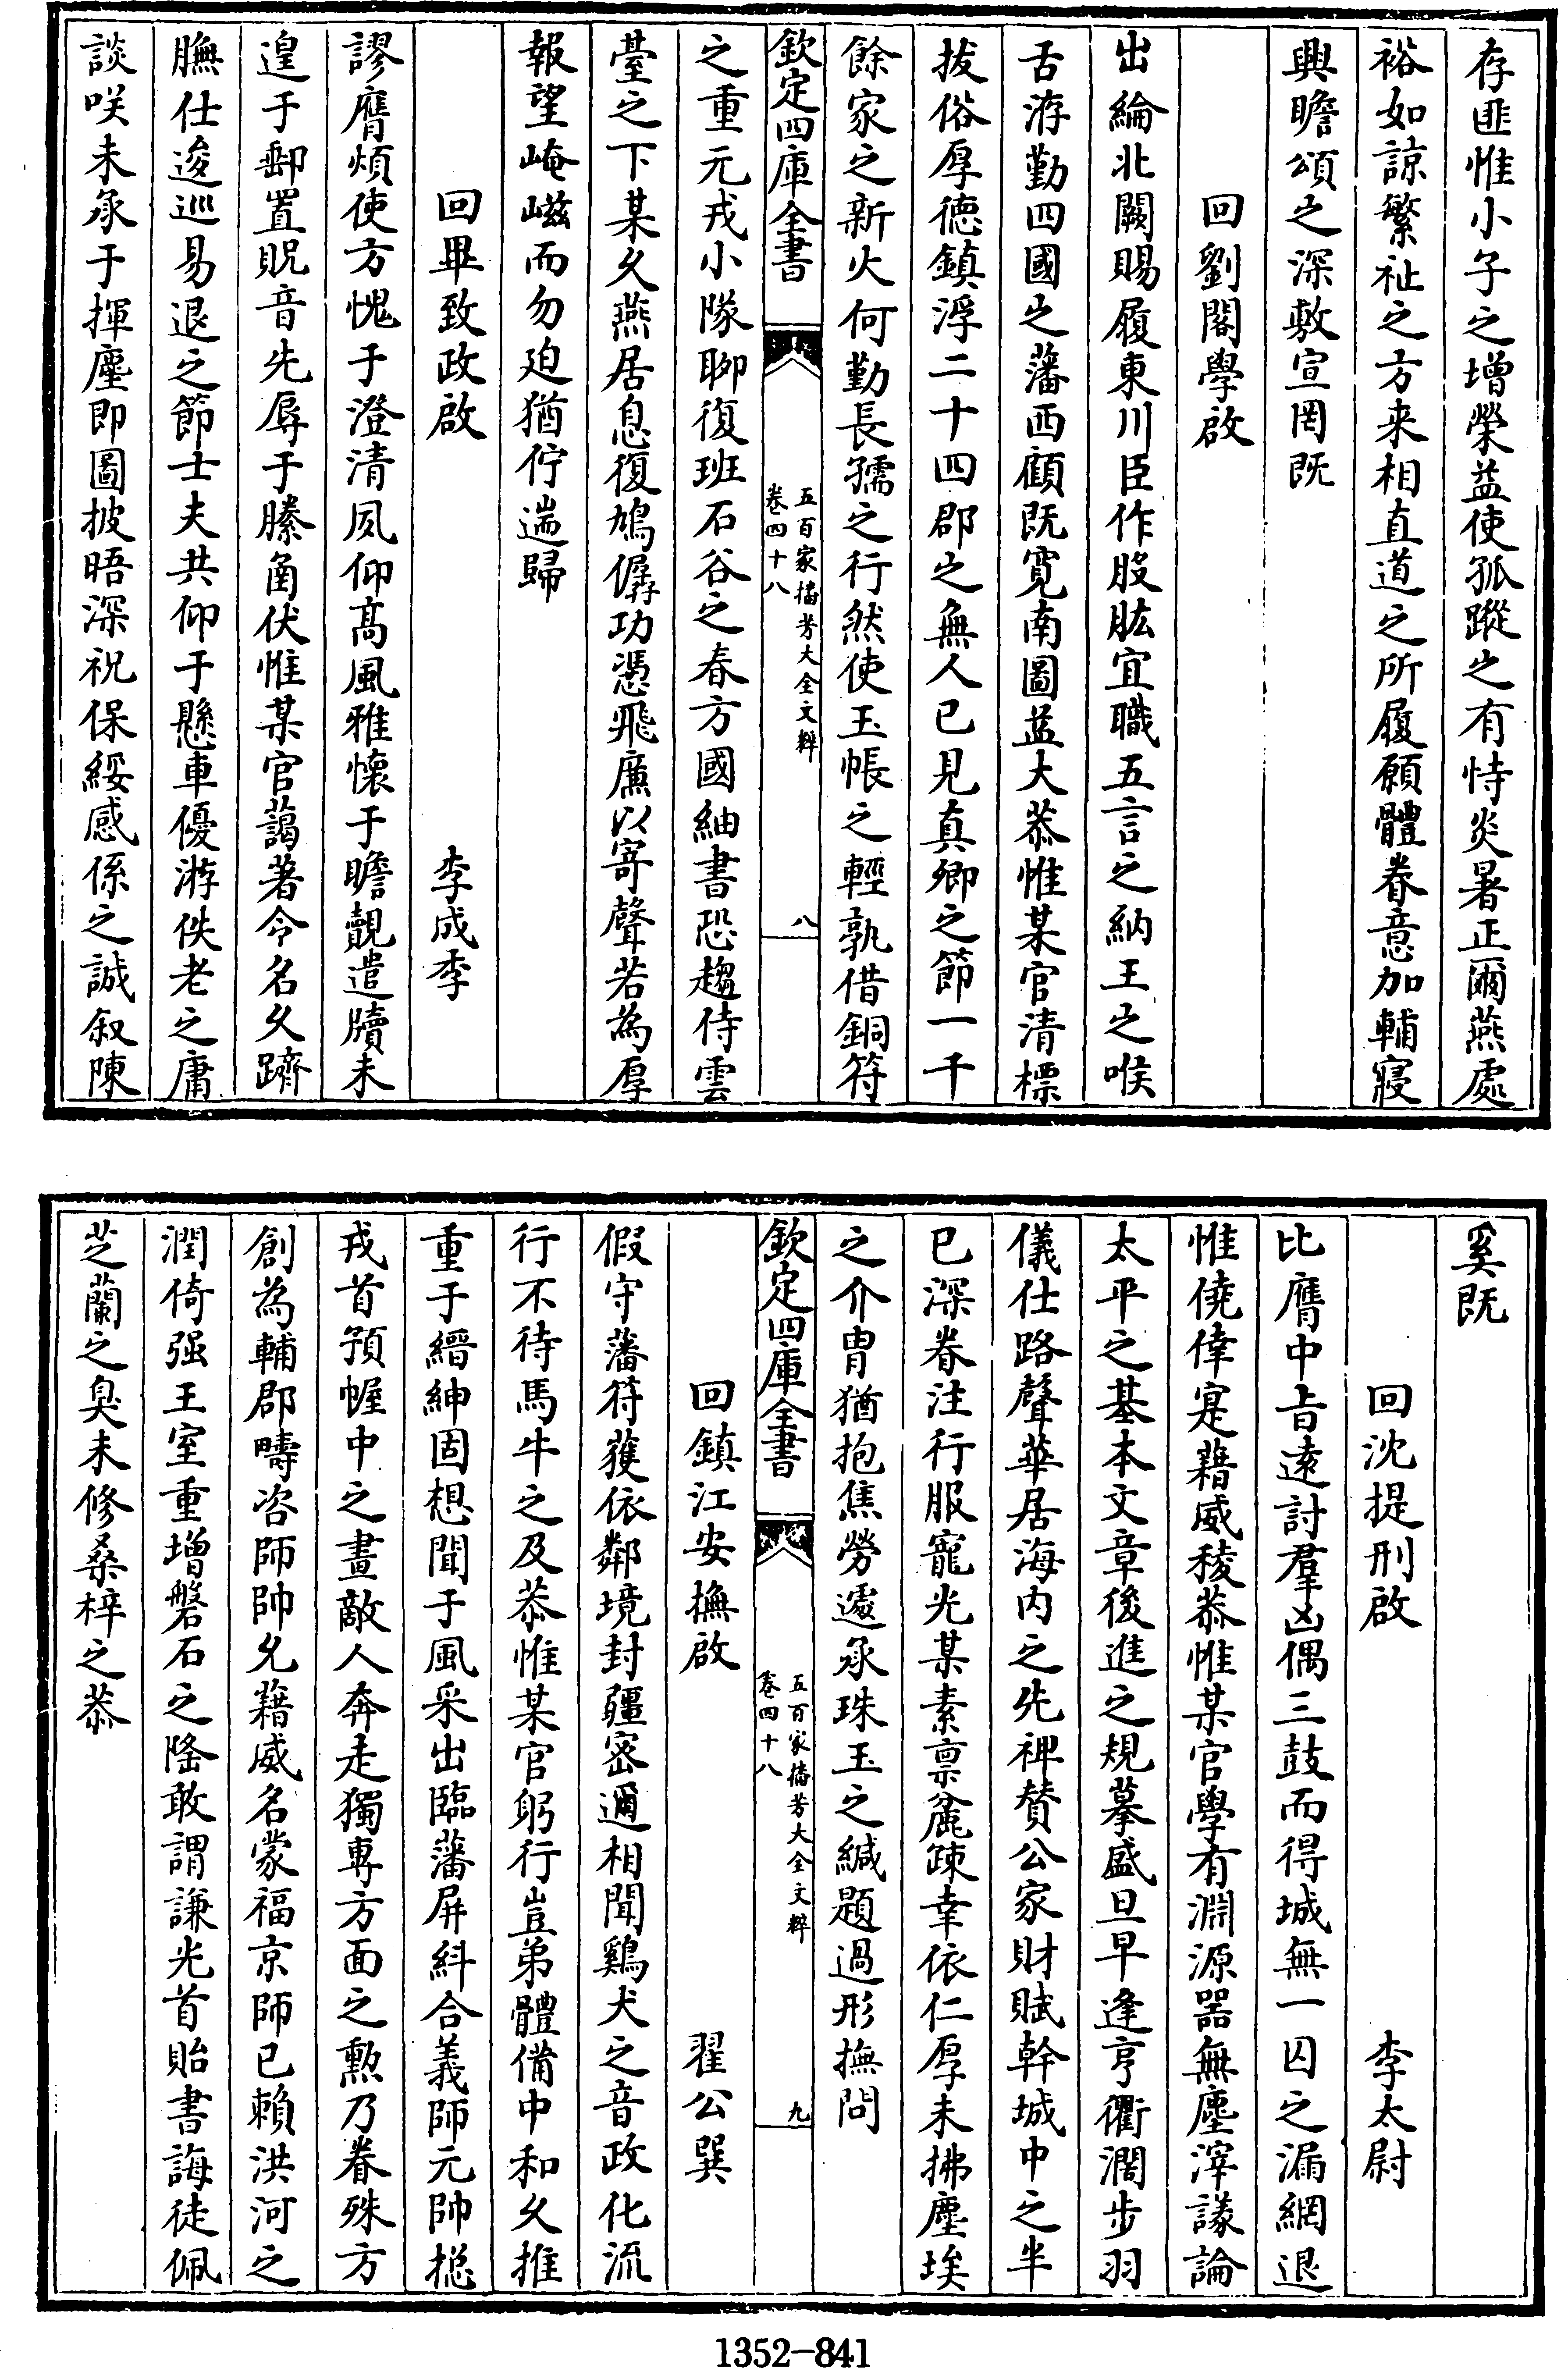 存匪惟小子之增榮益使孤蹤之有恃炎暑正爾燕處
裕如諒繁祉之方来相直道之所履願體眷意加輔寢
興瞻頌之深敷宣罔既
回劉閣學啟
出綸北闕賜履東川臣作股肱宜職五言之納王之喉
舌㳺勤四國之藩西顧既寛南圖益大恭惟某官清標
拔俗厚德鎮浮二十四郡之無人已見真卿之節一千
餘家之新火何勤長孺之行然使玉帳之輕孰借銅符
欽定四庫全書
五百家播芳大全文粹
卷四十八
八
之重元戎小隊聊復班石谷之春方國紬書恐趨侍雲
臺之下某久燕居息復鳩僝功憑飛廉以寄聲若為厚
報望崦嵫而勿廹猶佇遄歸
回畢致政啟 李成季
謬膺煩使方愧于澄清夙仰髙風雅懷于瞻覿遣牘未
遑于郵置貺音先辱于縢凾伏惟某官藹著令名久躋
膴仕逡巡易退之節士夫共仰于懸車優游佚老之庸
談咲未承于揮麈即圖披晤深祝保綏感係之誠叙陳
奚既
回沈提刑啟 李太尉
比膺中㫖遠討羣凶偶三鼓而得城無一囚之漏網退
惟僥倖寔藉威稜恭惟某官學有淵源器無塵滓議論
太平之基本文章後進之規摹盛旦早逢亨衢濶步羽
儀仕路聲華居海内之先裨賛公家財賦幹城中之半
已深眷注行服寵光某素禀麄踈幸依仁厚未拂塵埃
之介胄猶抱焦勞遽承珠玉之緘題過形撫問
欽定四庫全書
五百家播芳大全文粹
卷四十八
九
回鎮江安撫啟 翟公巽
假守藩符獲依鄰境封疆宻邇相聞鷄犬之音政化流
行不待馬牛之及恭惟某官躬行豈弟體備中和久推
重于縉紳固想聞于風采出臨藩屏糾合義師元帥揔
戎首預幄中之畫敵人奔走獨專方面之勲乃眷殊方
創為輔郡疇咨師帥允藉威名蒙福京師已賴洪河之
潤倚强王室重增磐石之隆敢謂謙光首貽書誨徒佩
芝蘭之臭未修桑梓之恭
1352-841